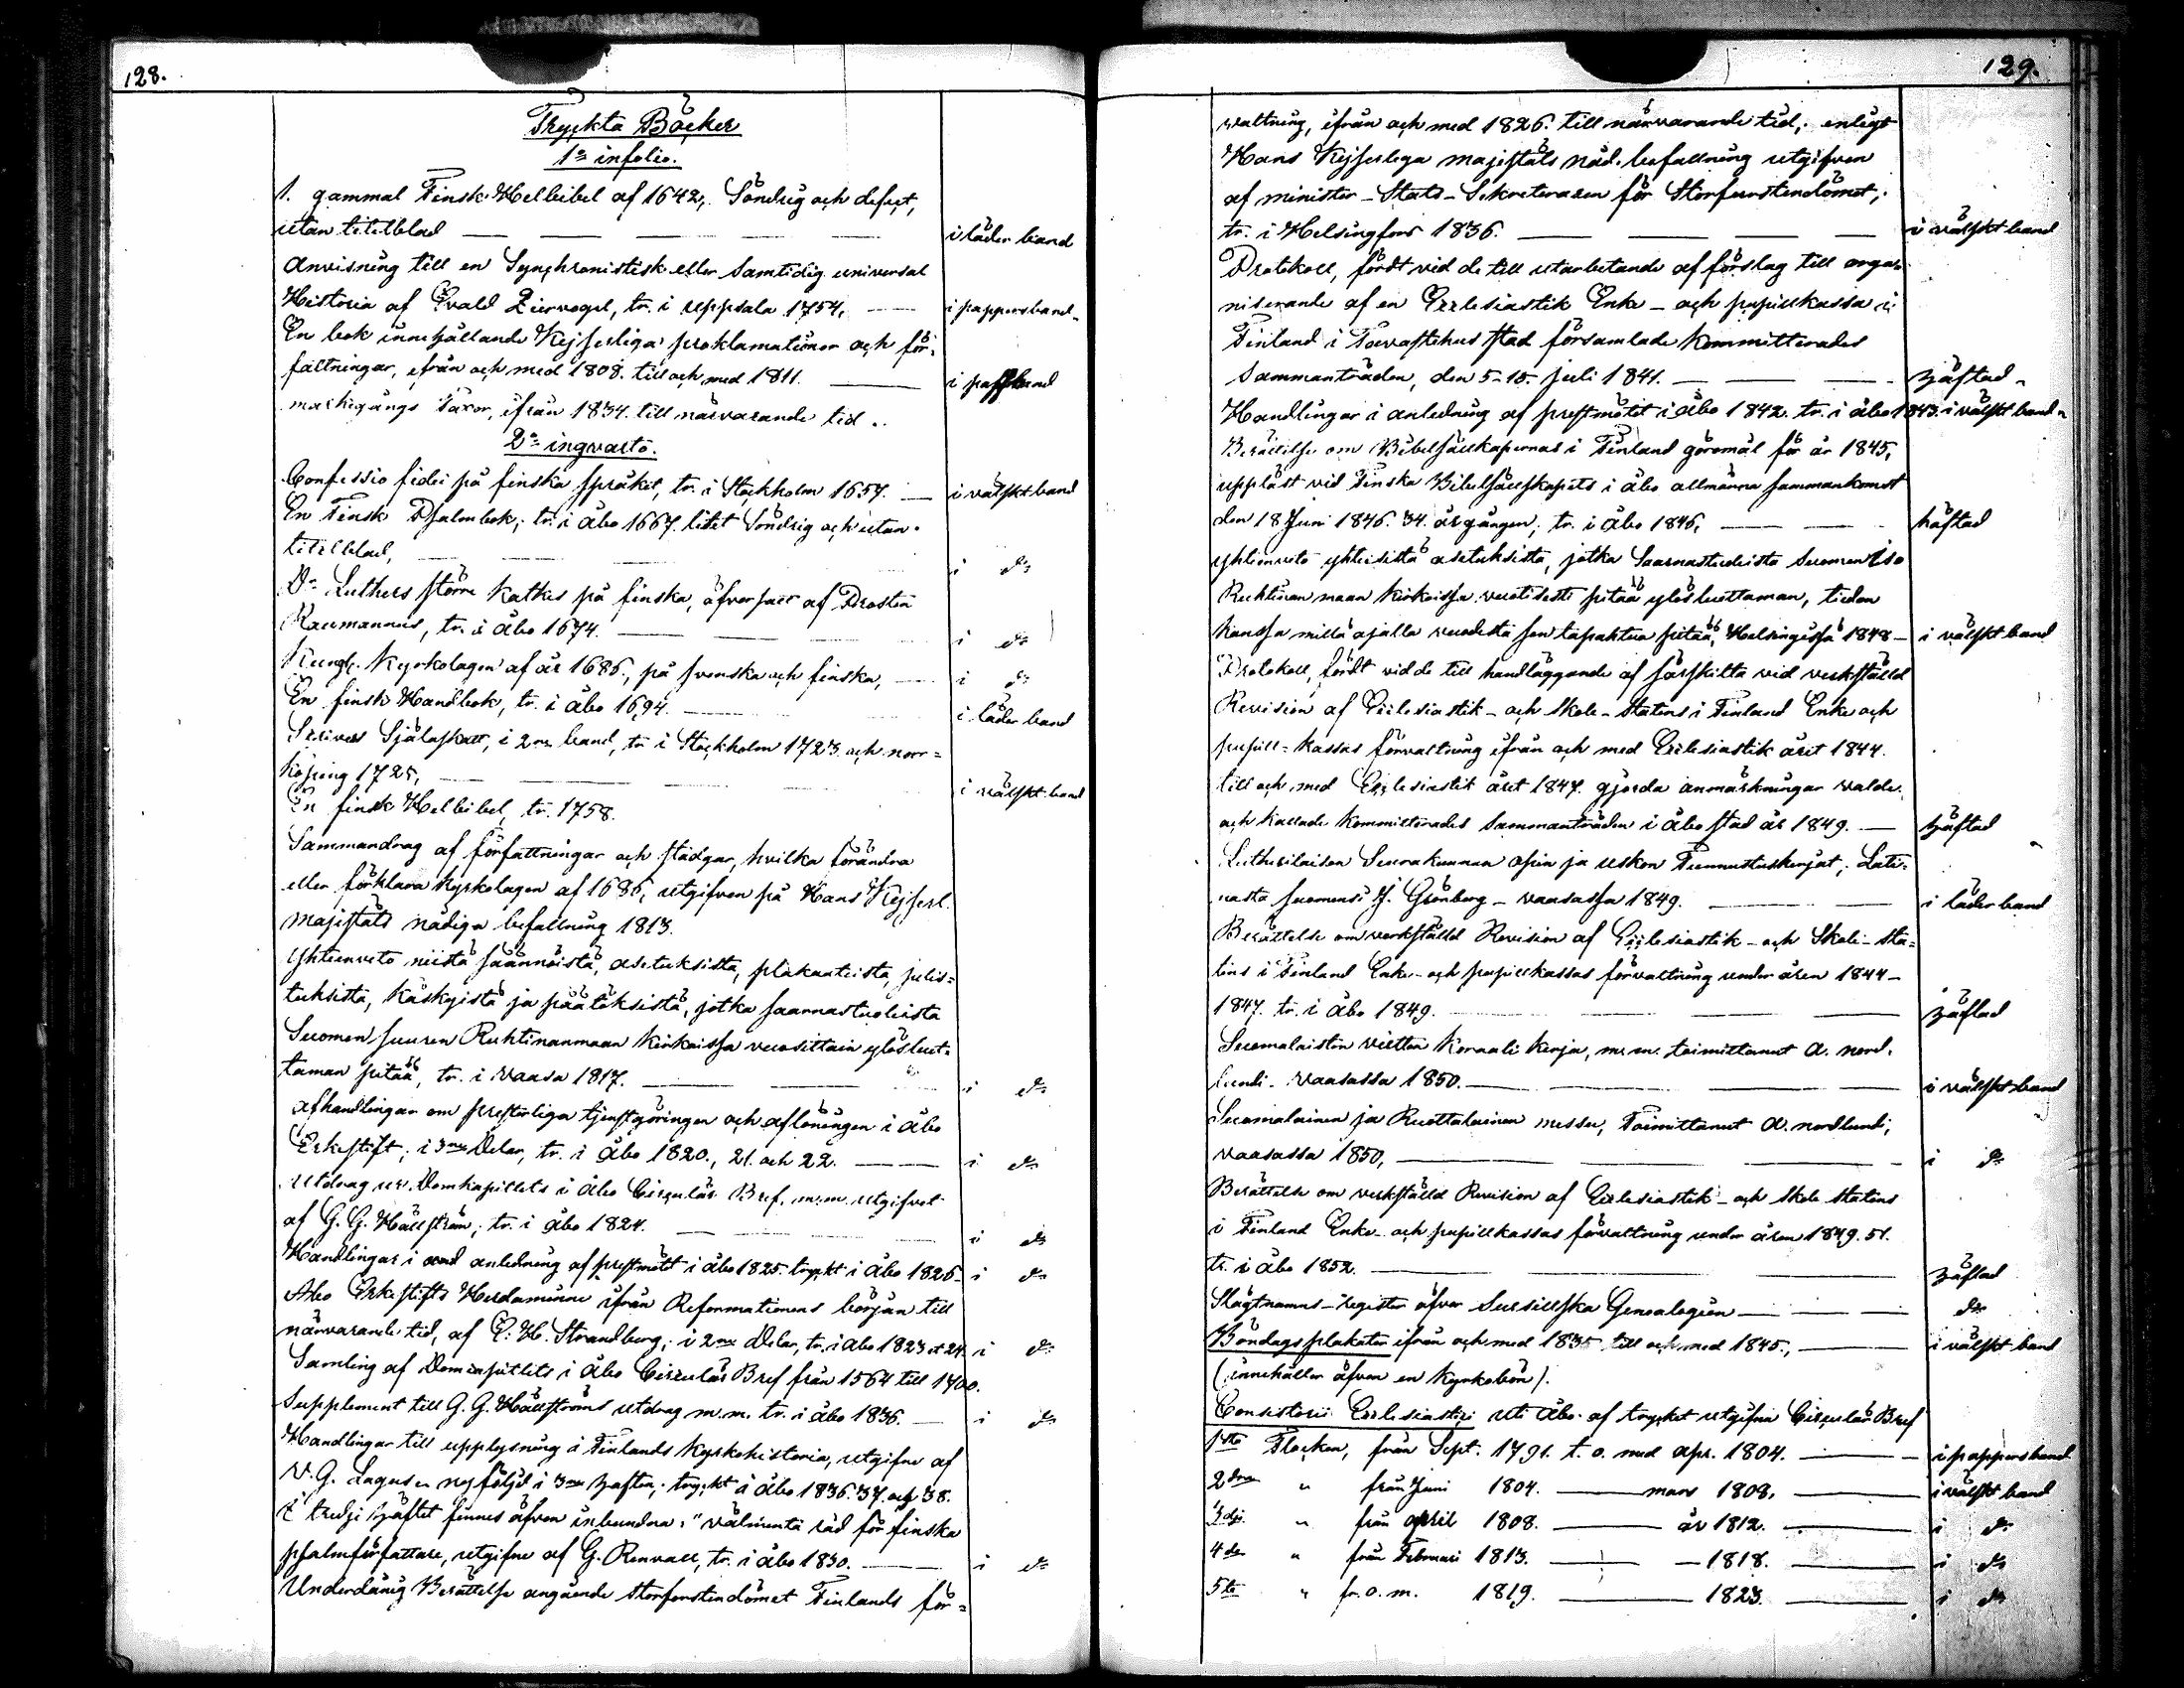 128.
Tryckta Böcker
1º infolio.
1. gammal Finsk Helbibel af 1642, Söndrig och defect,
utan titelblad — i läder band
Anvisning till en Synchronistisk eller Samtidig universal
Historia af Evald Ziervogel, tr. i Uppsala 1754, — i pappersband
En bok innehållande Kejserliga proklamationer och för-
fattningar, ifrån och med 1808. till och med 1811. — i pappband
markegångs Taxor, ifrån 1834. till närvarande tid.
2º inqvarto.
Confessio fidei på finska språket, tr. i Stockholm 1657. — i välskt band
En Finsk Psalmbok, tr. i Åbo 1667. litet Söndrig och utan
titelblad, — i do
Dr Luthers större Katkes på finska, öfversatt af Prosten
Raumannus, tr. i Åbo 1674. — i do
Kungl. Kyrkolagen af år 1686, på svenska och finska, — i do
En finsk Handbok, tr. i Åbo 1694. — i läder band
Scrivers Själaskatt, i 2ne band, tr. i Stockholm 1723 och norr=
köping 1725, — i välskt band
En finsk Helbibel, tr. 1758.
Sammandrag af författningar och stadgar, hvilka förändra
eller förklara Kyrkolagen af 1686, utgifven på Hans Kejserl.
majestäts nådiga befallning 1813.
Yhteenveto niistä säännöistä, asetuksista, plakaateista, julis=
tuksista, käskyistä ja päätöksistä, jotka saarnastuoleista
Suomen suuren Ruhtinanmaan Kirkoissa vuosittain ylösluet=
taman pitää, tr. i Vaasa 1817. — i do
Afhandlingar om presterliga tjenstgöringen och aflöningen i Åbo
Erkestift, i 3ne Delar, tr. i Åbo 1820., 21. och 22. — i do
Utdrag ur Domkapitlets i Åbo Circulär Bref, m.m. utgifvet
af G. G. Hällström, tr. i Åbo 1824. — i do
Handlingar i anledning af prestmötet i Åbo 1825. tryckt i Åbo 1826 — i do
Åbo Erkestifts Herdaminne ifrån Reformationens början till
närvarande tid, af C. H. Strandberg, i 2ne Delar, tr. i Åbo 1823 et 24 — i do
Samling af Domcapitlets i Åbo Circulär Bref från 1564 till 1700.
Supplement till G. G. Hällströms utdrag m.m. tr. i Åbo 1836. — i do
Handlingar till upplysning i Finlands Kyrkohistoria, utgifne af
V. G. Lagus en nyföljd i 3ne häften, tryckt i Åbo 1836. 37. och 38.
I tredje häftet finnes äfven inbundna: "välmenta råd för finska
psalmförfattare, utgifne af G. Renvall, tr. i Åbo 1830. — i do
Underdånig Berättelse angående Storfurstendömet Finlands för=
129.
valtning, ifrån och med 1826. till närvarande tid, enligt
Hans Kejserliga majestäts nåd. befallning utgifven
af minister-Stats-Sekreteraren för Storfurstendömet,
tr. i Helsingfors 1836. — i välskt band
Protokoll, fördt vid de till utarbetande af förslag till orga=
niserande af en Ecclesiastik Enke- och pupillkassa i
Finland i Tavastehus stad församlade Kommitterades
Sammanträden, den 5-15. juli 1841. — häftad
Handlingar i anledning af prestmötet i Åbo 1842. tr. i Åbo 1843. i välskt band
Berättelse om Bibelsällskapernas i Finland göromål för år 1845,
uppläst vid Finska Bibelsällskapets i Åbo allmänna sammankomst
den 18 Juni 1846. 34. årgången, tr. i Åbo 1846, — häftad
Yhteenveto yhteisistä asetuksista, jotka Saarnastuoleista Suomen Iso
Ruhtinan maan Kirkoissa vuotisesti pitää ylösluettaman, tiedon
kanssa millä ajalla vuodesta sen tapahtua pitää, Helsingissä 1848 — i välskt band
Protokoll, fördt vid de till handläggande af särskilta vid verkställd
Revision af Ecclesiastik- och skole-statens i Finland Enke och
pupill-kassas förvaltning ifrån och med Ecclesiastik året 1844.
till och med Ecclesiastik året 1847. gjorda anmärkningar valde
och kallade Kommitterades sammanträden i Åbo stad år 1849. — häftad
Lutherilaisen Seurakunnan opin ja uskon Tunnustuskirjat, Lati=
nasta suomensi J. Grönberg - Vaasassa 1849. — i läder band
Berättelse om verkställd Revision af Ecclesiastik- och Skole-sta=
tens i Finland Enke- och pupillkassas förvaltning under åren 1844-
1847. tr. i Åbo 1849. — häftad
Suomalaisten virtten Koraali Kirja, m.m. toimittanut A. nord.
lundi. Vaasassa 1850. — i välskt band
Suomalainen ja Ruottalainen messu, Toimittanut A. nordlundi,
Vaasassa 1850, — i do
Berättelse om verkställd Revision af Ecclesiastik- och skole statens
i Finland Enke- och pupillkassas förvaltning under åren 1849. 51.
tr. i Åbo 1852. — häftad
Slägtnamns-register öfver Sursillska Genealogien — do
Böndagsplakater ifrån och med 1835 till och med 1845., — i välskt band
(innehåller äfven en Kyrkobön).
Consistorii Ecclesiastici uti Åbo af trycket utgifna Circulär Bref
1sta Flocken, från Sept. 1791. t. o. med apr. 1804. — i pappersband
2dra " från Juni 1804. — mars 1808. — i välskt band
3dje " från april 1808. — år 1812. — i do
4de " från Februari 1813. — 1818. — i do
5te " fr. o. m. 1819. — 1823. — i do